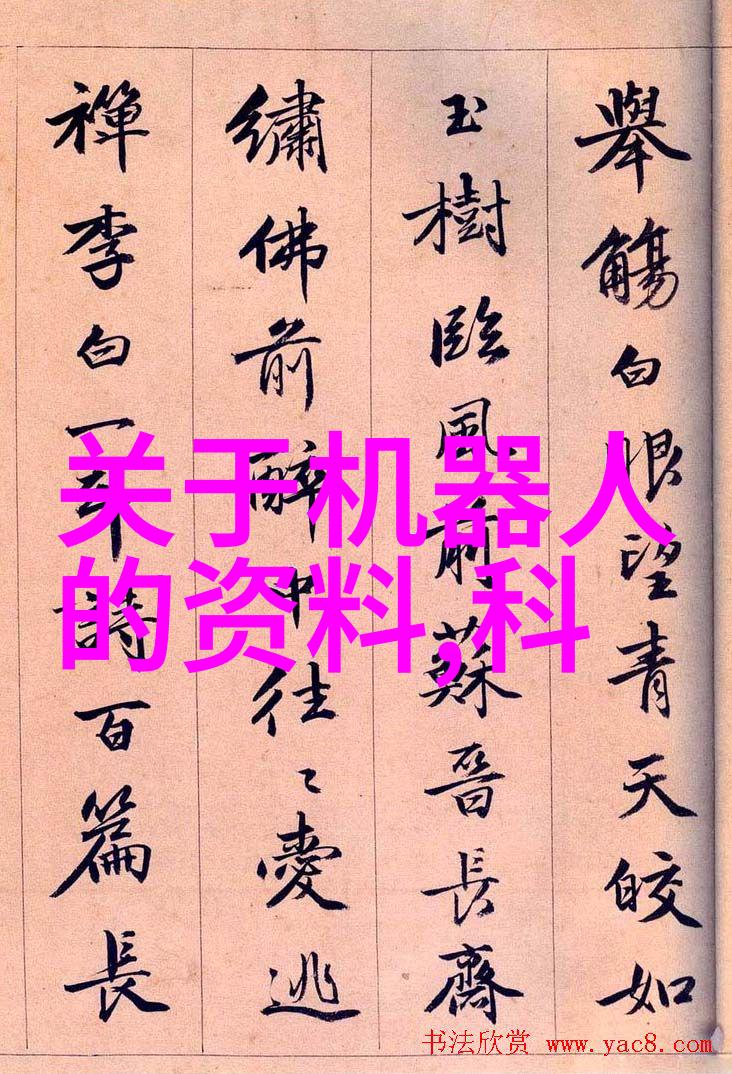 舉觴白眼望青天皎如
玉樹臨風前蘇晉長齋
繡佛前醉中往〻愛逃
禪李白一斗詩百篇長
关于机器人
的资料,科
书法欣赏 www.yac8.com